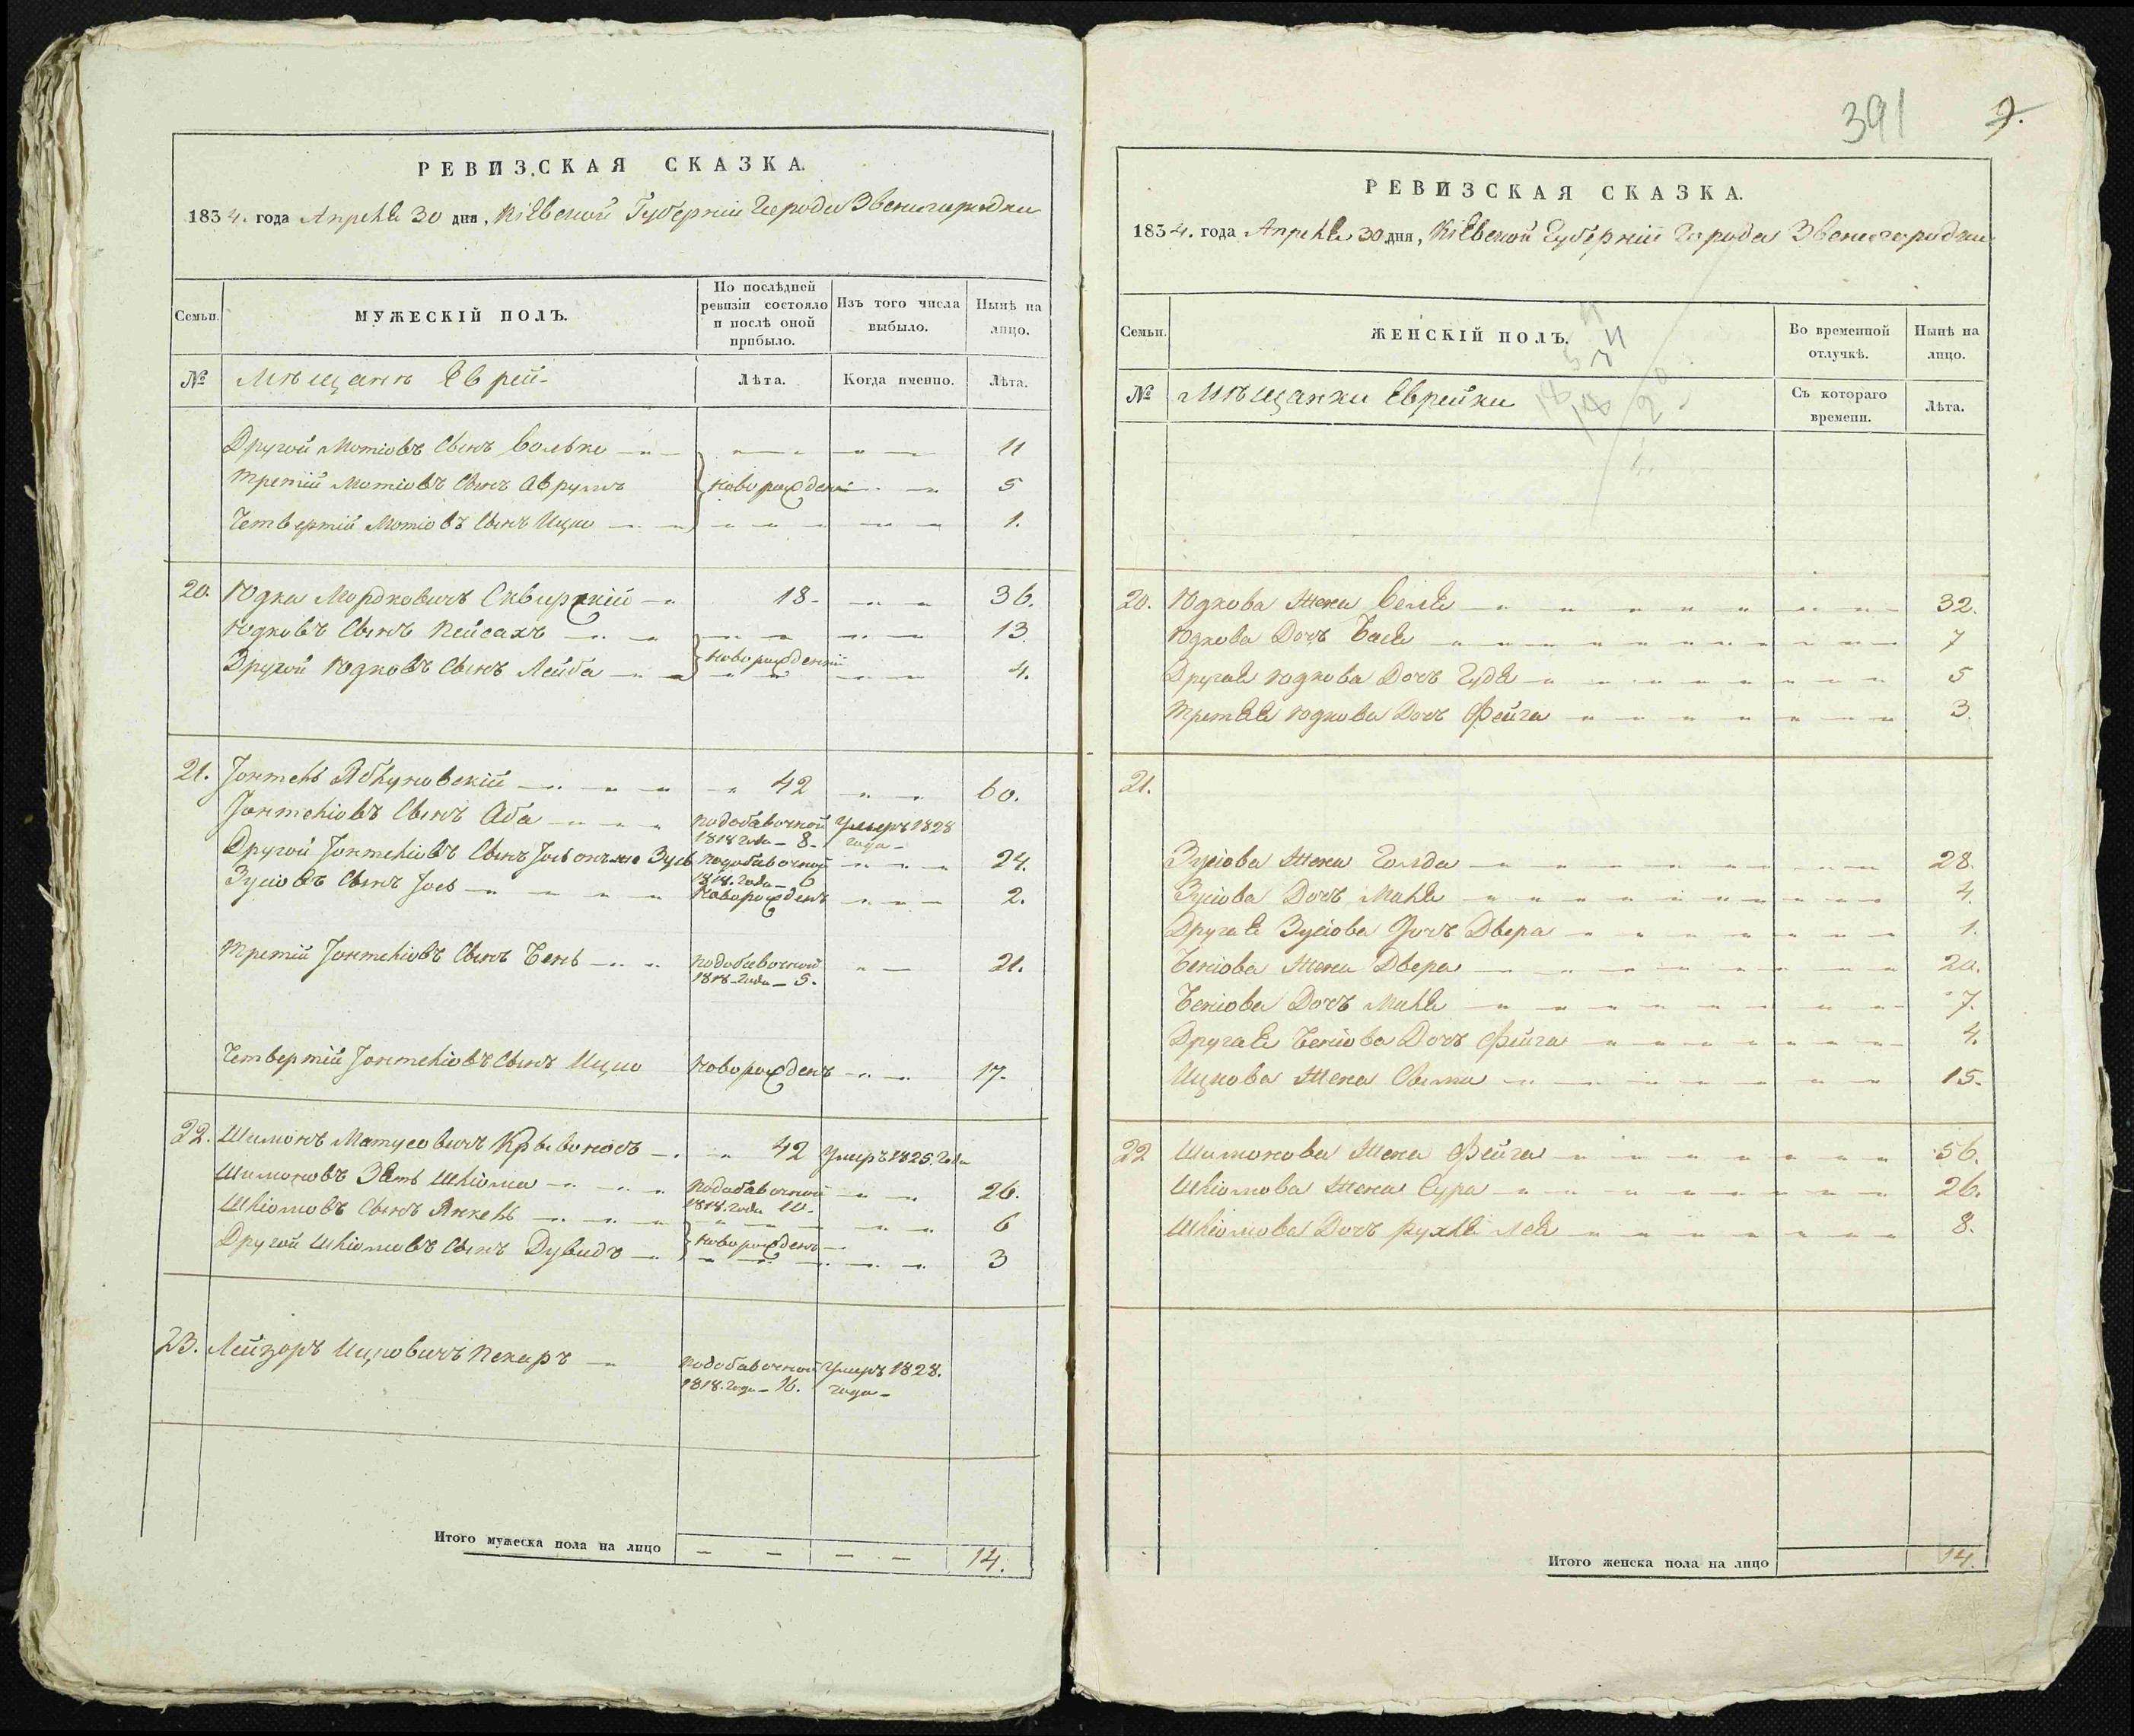 РЕВИЗСКАЯ СКАЗКА.
1834. года Апреля 30 дня, Кіевской Губерніи Города Звенигородки
Семьи.
МУЖЕСКІЙ ПОЛЪ.
По послѣдней ревизіи состояло и послѣ оной прибыло.
Изъ того числа выбыло.
Нынѣ на лицо.
№
Мѣщане Евреи
Лѣта.
Когда именно.
Лѣта.
Другой Мотіовъ Сынъ Волько 11
Третій Мотіовъ Сынъ Аврумъ Новорожденіи 5
Четвертій Мотіовъ Сынъ Ицко 1.
20. Юдка Мордковичъ Сквирскій 18 36.
Юдковъ Сынъ Пейсахъ 13.
Новорожденніи
Другой Юдковъ Сынъ Лейба 4.
21. Іонтель Яблуновскій 42 60.
Іонтеліовъ Сынъ Аба подобавочной 1818 года 8. Умеръ 1828 года
Другой Іонтеліовъ Сынъ Зусь подобавочной 1818. года 24.
Зусіовъ Сынъ Іось Новорожденъ 2.
Третій Іонтеліовъ Сынъ Бень подобавочной 1818 года 5. 21.
Четвертій Іонтеліовъ Сынъ Ицко Новорожденъ 17.
22. Шимонъ Матусовичъ Кривоносъ 42 Умеръ 1825. года
Шимоновъ Зять Шліома подобавочной 1818. года 10. 26.
Шліомовъ Сынъ Янкель 6
Новорожденъ
Другой Шліомовъ Сынъ Дувидъ 3
23. Лейзоръ Ицковичъ Пекаръ подобавочной 1818. года 16. Умеръ 1828. года
Итого мужеска пола на лицо 14.
391
РЕВИЗСКАЯ СКАЗКА.
1834. года Апреля 30 дня, Кіевской Губерніи Города Звенигородки
Семьи.
ЖЕНСКІЙ ПОЛЪ.
Во временной отлучкѣ.
Нынѣ на лицо.
№
Мѣщанки Еврейки
Съ котораго времени.
Лѣта.
20. Юдкова Жена Бейля 32.
Юдкова Дочъ Бася 7
Другая Юдкова Дочъ Гудя 5
Третяя Юдкова Дочъ Фейга 3.
21.
Зусіова Жена Голда 28.
Зусіова Дочъ Маля 4.
Другая Зусіова Дочъ Двера 1.
Беніова Жена Двера 20.
Беніова Дочъ Маля 7.
Другая Беніова Дочъ Фейга 4.
Ицкова Жена 15.
22 Шимонова Жена Фейга 56.
Шліомова Жена Сура 26.
Шліомова Дочъ Рухля Лея 8.
Итого женска пола на лицо 14.